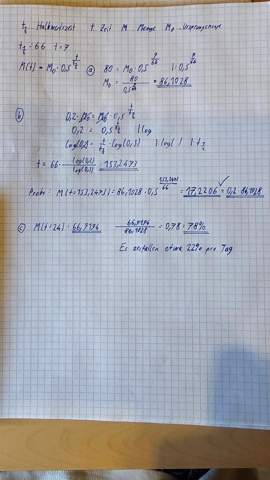 t½ Halbwertszeit t Zeit M Menge M₀ Ursprungsmenge
t½ = 66 t = 7
M(t) = M₀ · 0,5^(t/t½) a) 80 = M₀ · 0,5^(7/66) | : 0,5^(7/66)
M₀ = 80/0,5^(7/66) = 86,1028
b) 0,2 · M₀ = M₀ · 0,5^(t/t½)
0,2 = 0,5^(t/t½) | log
log(0,2) = t/t½ · log(0,5) | : log( ) | · t½
t = 66 · log(0,2)/log(0,5) = 153,2473
Probe: M(t=153,2473) = 86,1028 · 0,5^(153,2473/66) = 17,2206 ✓ = 0,2 · 86,1028
c) M(t=24) = 66,9194 66,9194/86,1028 = 0,78 = 78%
Es zerfallen etwa 22% pro Tag